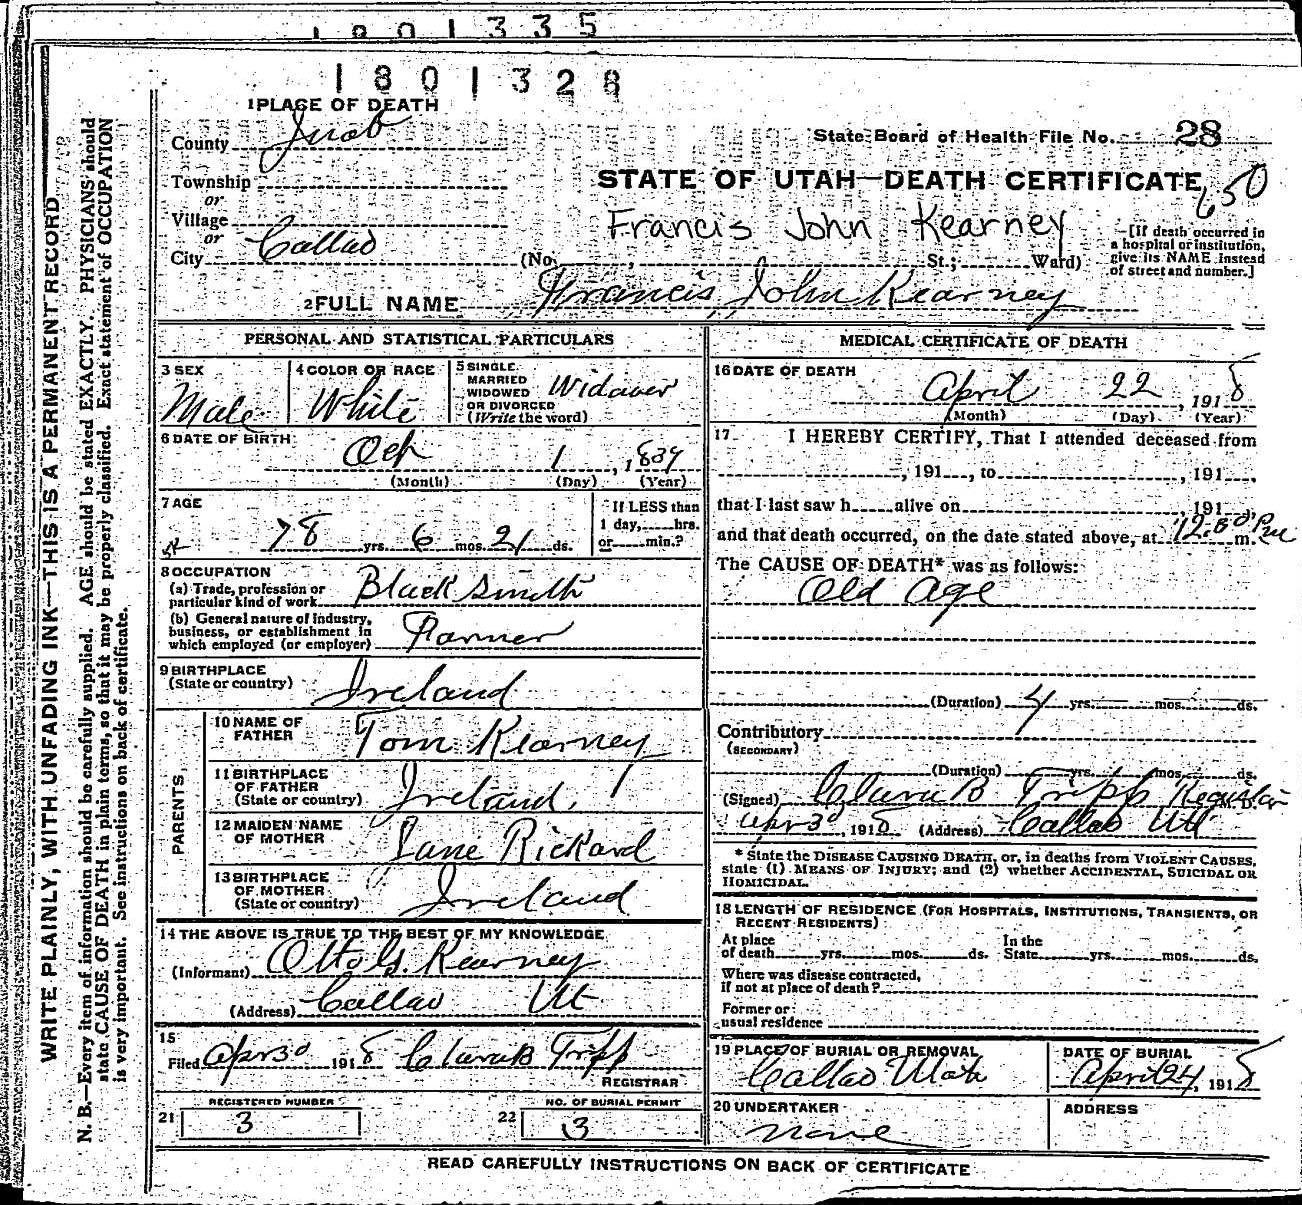 1801335
1801328
1 PLACE OF DEATH
County Juab
State Board of Health File No. 28
Township
or
Village
or
City Callao
STATE OF UTAH—DEATH CERTIFICATE
650
Francis John Kearney
(No. , St.; Ward)
[If death occurred in
a hospital or institution,
give its NAME instead
of street and number.]
2 FULL NAME Francis John Kearney
PERSONAL AND STATISTICAL PARTICULARS
3 SEX
Male
4 COLOR OR RACE
White
5 SINGLE
MARRIED
WIDOWED
OR DIVORCED
(Write the word)
Widawer
6 DATE OF BIRTH
Oct 1, 1839
(Month) (Day) (Year)
7 AGE
78 yrs. 6 mos. 21 ds.
If LESS than
1 day, hrs.
or min.?
8 OCCUPATION
(a) Trade, profession or
particular kind of work Black Smith
(b) General nature of industry,
business, or establishment in
which employed (or employer) Farmer
9 BIRTHPLACE
(State or country) Ireland
PARENTS
10 NAME OF
FATHER Tom Kearney
11 BIRTHPLACE
OF FATHER
(State or country) Ireland
12 MAIDEN NAME
OF MOTHER Jane Rickard
13 BIRTHPLACE
OF MOTHER
(State or country) Ireland
14 THE ABOVE IS TRUE TO THE BEST OF MY KNOWLEDGE
(Informant) Otto G. Kearney
(Address) Callao Ut
15
Filed Apr 30 1918 Clara B Tripp
REGISTRAR
REGISTERED NUMBER
21 3
NO. OF BURIAL PERMIT
22 3
MEDICAL CERTIFICATE OF DEATH
16 DATE OF DEATH
April 22, 1918
(Month) (Day) (Year)
17 I HEREBY CERTIFY, That I attended deceased from
, 191 , to , 191 ,
that I last saw h alive on , 191 ,
and that death occurred, on the date stated above, at 12.50 m. Pm
The CAUSE OF DEATH* was as follows:
Old Age
(Duration) 4 yrs. mos. ds.
Contributory
(SECONDARY)
(Duration) yrs. mos. ds.
(Signed) Clara B Tripp Registar
Apr 30, 1918 (Address) Callao Ut
* State the DISEASE CAUSING DEATH, or, in deaths from VIOLENT CAUSES,
state (1) MEANS OF INJURY; and (2) whether ACCIDENTAL, SUICIDAL OR
HOMICIDAL.
18 LENGTH OF RESIDENCE (FOR HOSPITALS, INSTITUTIONS, TRANSIENTS, OR
RECENT RESIDENTS)
At place
of death yrs. mos. ds.
In the
State yrs. mos. ds.
Where was disease contracted,
if not at place of death?
Former or
usual residence
19 PLACE OF BURIAL OR REMOVAL
Callao Utah
DATE OF BURIAL
April 24, 1918
20 UNDERTAKER
none
ADDRESS
READ CAREFULLY INSTRUCTIONS ON BACK OF CERTIFICATE
WRITE PLAINLY, WITH UNFADING INK—THIS IS A PERMANENT RECORD
N. B.—Every item of information should be carefully supplied. AGE should be stated EXACTLY. PHYSICIANS should
state CAUSE OF DEATH in plain terms, so that it may be properly classified. Exact statement of OCCUPATION
is very important. See instructions on back of certificate.